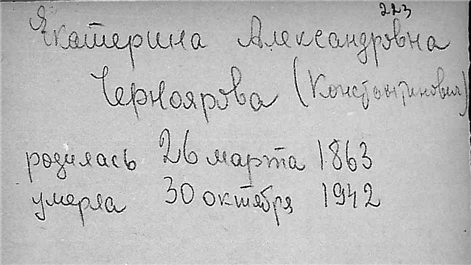 223
Екатерина Александровна
Черноярова (Константинович)
родилась 26 марта 1863
умерла 30 октября 1942